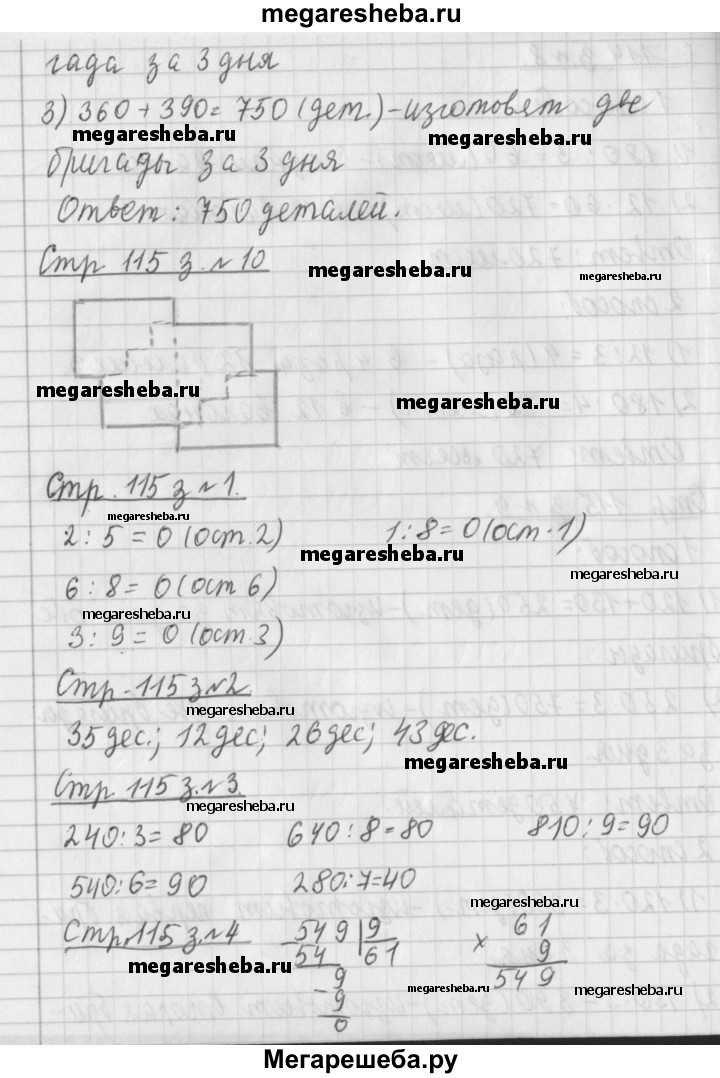 megaresheba.ru
гада за 3 дня
3) 360 + 390 = 750 (дет.) - изготовят две
megaresheba.ru megaresheba.ru
бригады за 3 дня
Ответ: 750 деталей.
Стр. 115 з. №10
megaresheba.ru megaresheba.ru
megaresheba.ru megaresheba.ru
Стр. 115 з №1.
megaresheba.ru
2 : 5 = 0 (ост. 2) 1 : 8 = 0 (ост. 1)
megaresheba.ru megaresheba.ru
6 : 8 = 0 (ост 6)
megaresheba.ru
3 : 9 = 0 (ост. 3)
Стр. 115 з №2.
megaresheba.ru
35 дес.; 12 дес; 26 дес; 43 дес.
megaresheba.ru
Стр. 115 з. №3.
megaresheba.ru
240 : 3 = 80 640 : 8 = 80 810 : 9 = 90
540 : 6 = 90 280 : 7 = 40
megaresheba.ru
Стр. 115 з. №4
549 | 9 61
54 61 × 9
megaresheba.ru 9 549
megaresheba.ru megaresheba.ru
- 9
0
Мегарешеба.ру